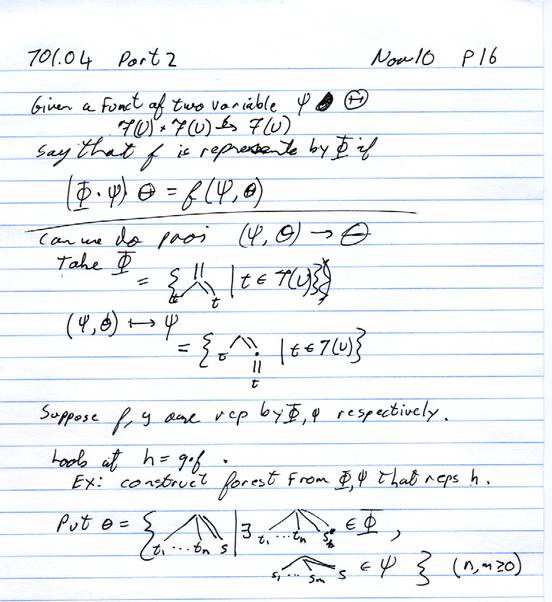 701.04 Part 2 Nov 10 P16
Given a Funct of two variable Ψ Θ
F(U) × F(U) → F(U)
say that f is represente by Φ if
(Φ · Ψ) Θ = f(Ψ, Θ)
Can we do (Ψ, Θ) → Θ
Take Φ
= { t t | t ∈ T(U)}
(Ψ, Θ) ↦ Ψ
= { t t | t ∈ T(U)}
Suppose f, g are rep by Φ, Ψ respectively.
Look at h = g∘f.
Ex: construct forest From Φ, Ψ that reps h.
Put Θ = { t₁ ... tₙ s | ∃ t₁ ... tₙ ∈ Φ,
s₁ ... sₘ s ∈ Ψ } (n, m ≥ 0)